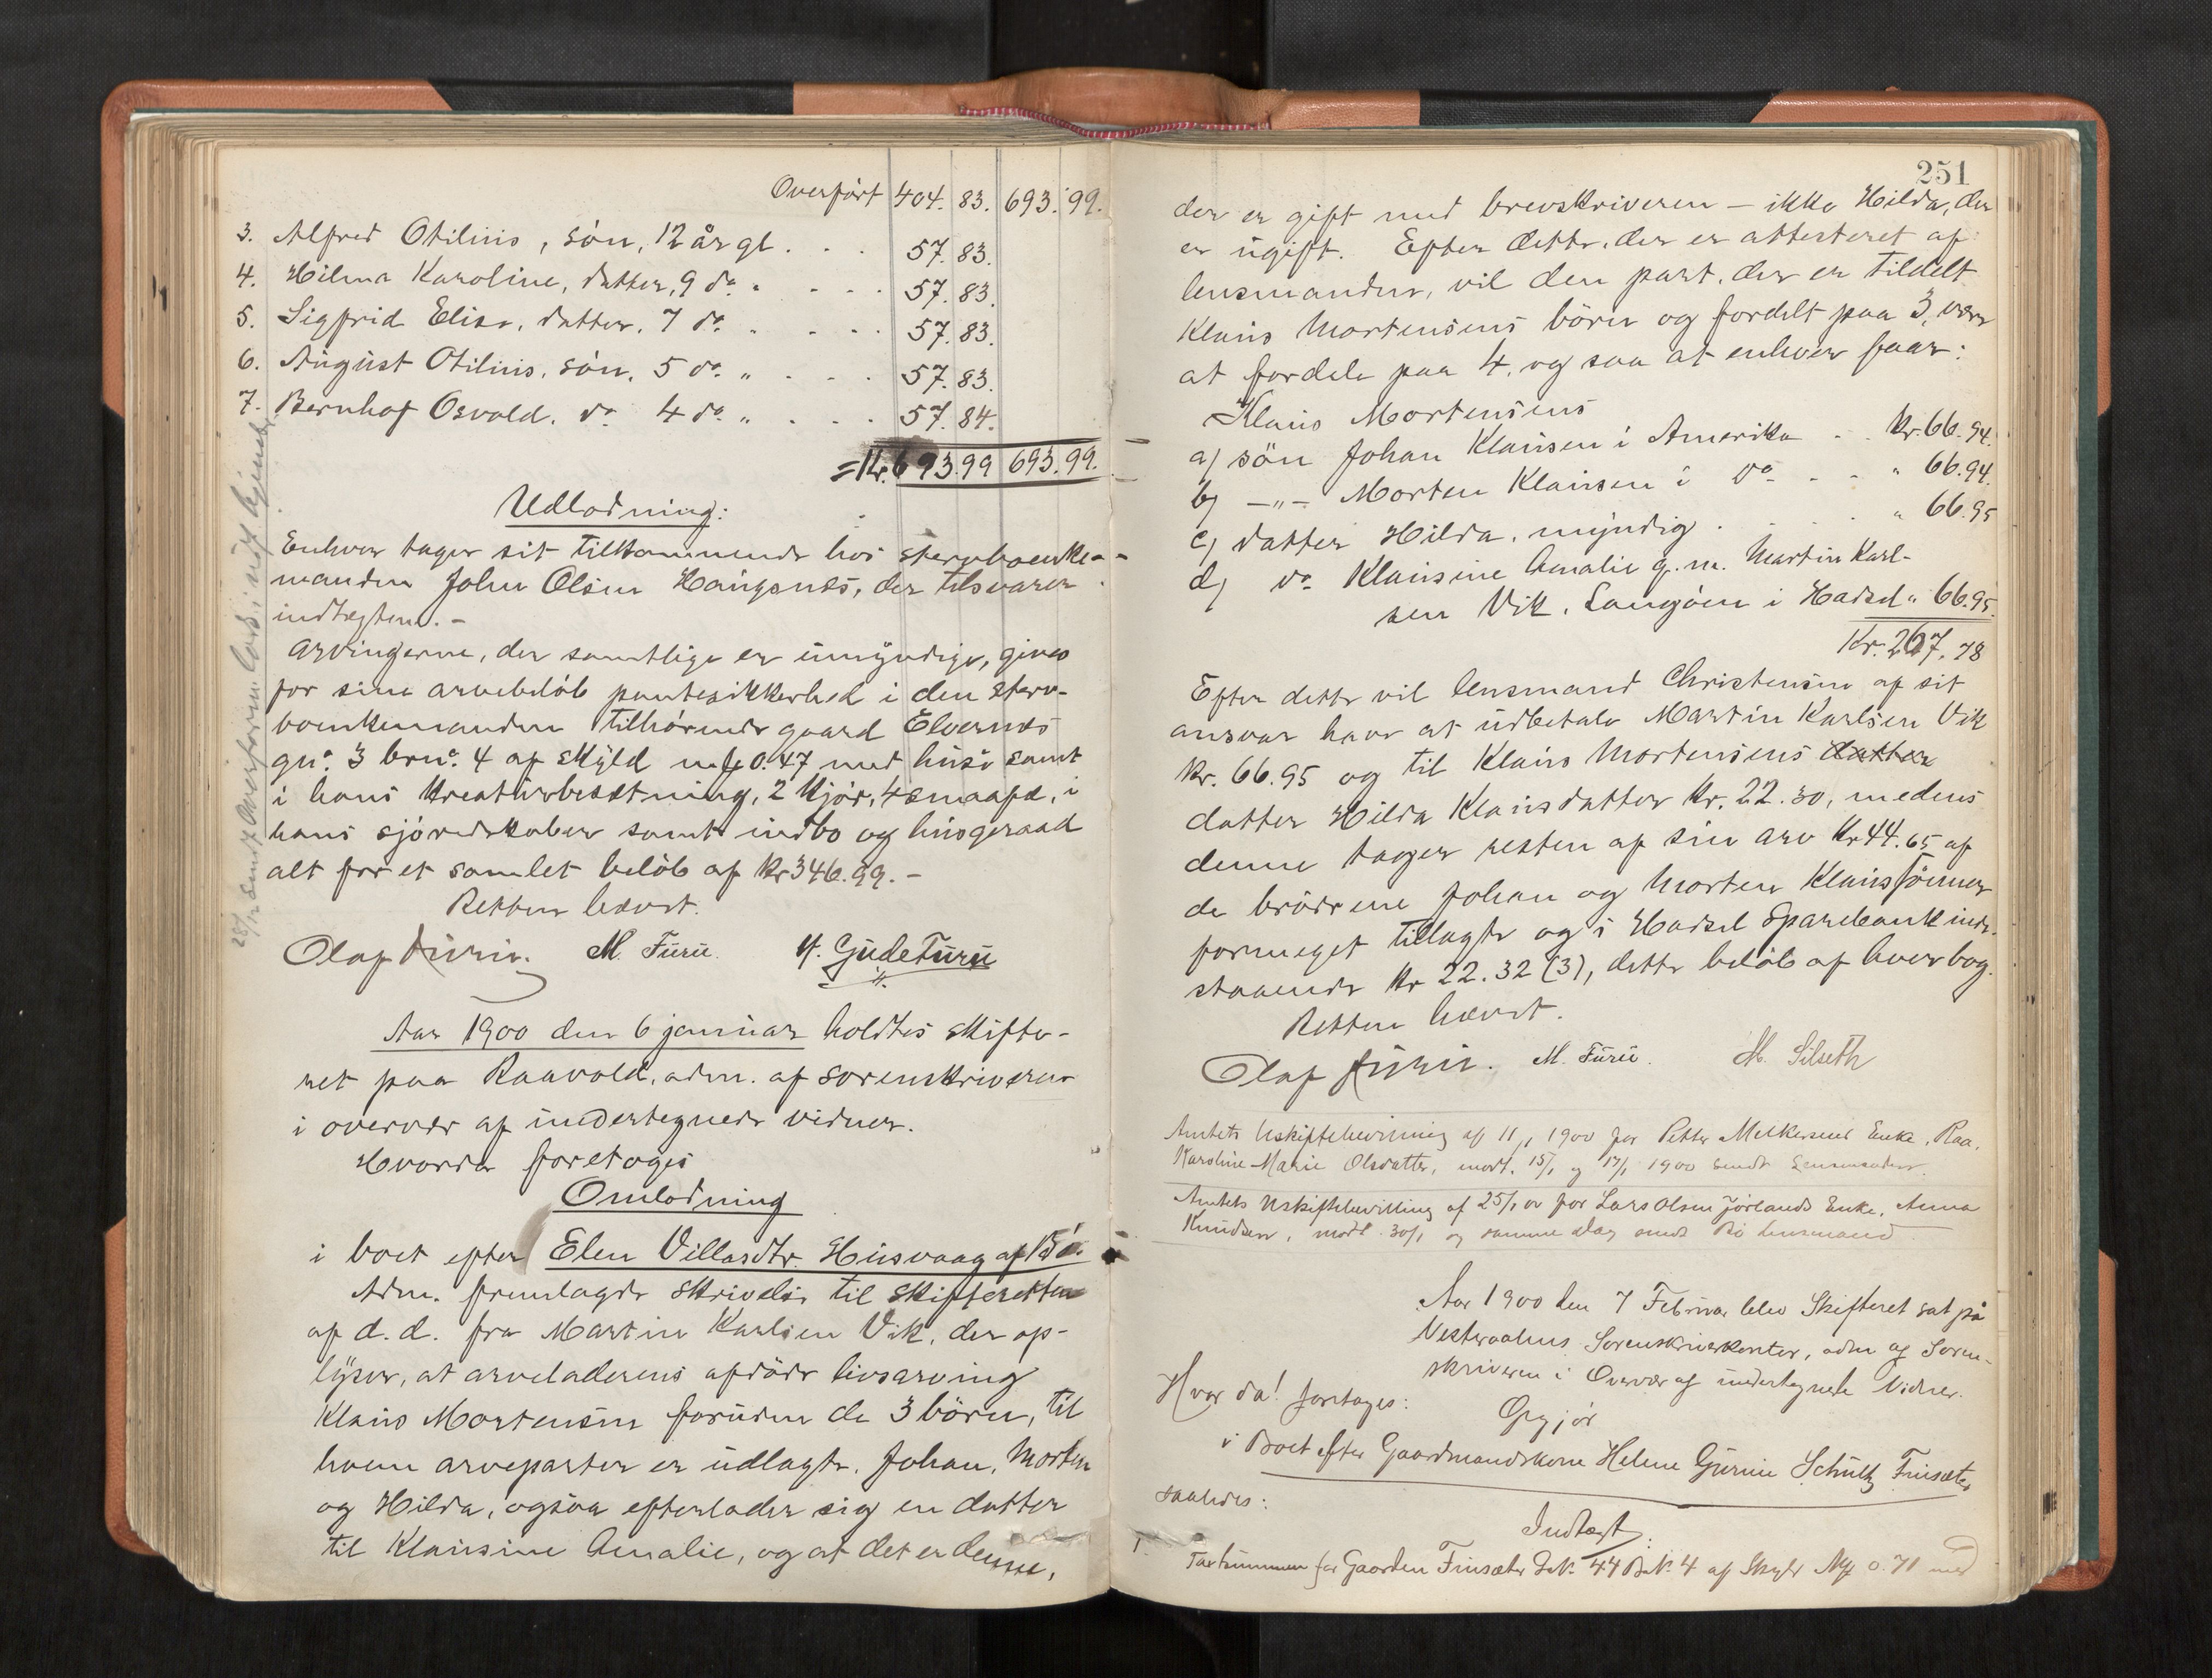 Overført 404. 83. 693. 99.
3. Alfred Otilius, søn, 12 år gl. . . 57. 83.
4. Hilma Karoline, datter, 9 do. " . . . 57. 83.
5. Sigfrid Elise, datter, 7 do. . . . . 57. 83.
6. August Otilius, søn, 5 do. " . . . 57. 83.
7. Bernhof Osvald, do 4 do. " . . . 57. 84.
= Kr. 693.99 693.99.
Udlodning:
Enhver tager sit tilkommende hos stervboenke-
manden John Olsen Haugsnes, der tilsvarer
indtægten. -
Arvingerne, der samtlige er umyndige, gives
for sine arvebeløb pantesikkerhed i den sterv-
boenkemanden tilhørende gaard Elvenes
gn.º 3 brn.º 4 af skyld mk 0.47 med huse samt
i hans kreaturbesætning, 2 kjør, 4 smaafæ, i
hans sjøredskaber samt indbo og husgeraad
alt for et samlet beløb af kr 346.99. -
Retten hævet.
Olaf M. Furu. H. Gude Furu
Aar 1900 den 6 januar holdtes skifte-
ret paa Raavold, adm. af sorenskriveren
i overvær af undertegnede vidner.
Hvorda foretoges
Omlodning
i boet efter Elen Villasdtr. Husvaag af
Adm. fremlagde skrivelse til skifteretten
af d. d. fra Martin Karlsen Vik, der op-
lyser, at arveladerens afdøde livsarving
Klaus Mortensen foruden de 3 børn, til
hvem arveparter er udlagte, Johan, Morten
og Hilda, ogsaa efterlader sig en datter
til Klausine Amalie, og at det er denne,
251
der er gift med brevskriveren — ikke Hilda, der
er ugift. Efter dette, der er attesteret af
lensmanden, vil den part, der er tildelt
Klaus Mortensens børn og fordelt paa 3, være
at fordele paa 4, og saa at enhver faar:
Klaus Mortensens
a) søn Johan Klausen i Amerika . . kr. 66.94.
b) —"— Morten Klausen i do - . - " 66.94.
c) datter Hilda, myndig . . . . " 66.95
d) do Klausine Amalie g. m. Martin Karl-
sen Vik, Langøen i Hadsel " 66.95.
Kr. 267.78
Efter dette vil lensmand Christensen af sit
ansvar have at udbetale Martin Karlsen Vik
kr. 66.95 og til Klaus Mortensens datter
datter Hilda Klausdatter kr. 22.30, medens
denne tager resten af sin arv kr 44.65 af
de brødrene Johan og Morten Klaussønner
formeget tillagte og i Hadsel Sparebank inde-
staaende kr 22.32 (3), dette beløb af hver bog.
Retten hævet.
Olaf M. Furu. M. Silseth
Amtets Uskiftebevilling af 11/1 1900 for Petter Melkersens Enke, Raa,
Karoline Marie Olsdatter, modt. 15/1 og 17/1 1900 sendt Lensmanden.
Amtets Uskiftebevilling af 25/1 00 for Lars Olsen Jørlands Enke, Anna
Knudsen, modt. 30/1 og samme Dag sendt Bø Lensmand
Aar 1900 den 7 Februar blev Skifteret sat på
Vesteraalens Sorenskriverkontor, adm af Soren-
skriveren i Overvær af undertegnede Vidner.
Hvor da! foretages:
Opgjør
i Boet efter Gaardmandskone Helene Gurine Schultz Finsæter
saaledes:
Indtægt:
1. Taxtsummen for Gaarden Finsæter G.No. 44 B.No. 4 af Skyld Mk 0.71 med